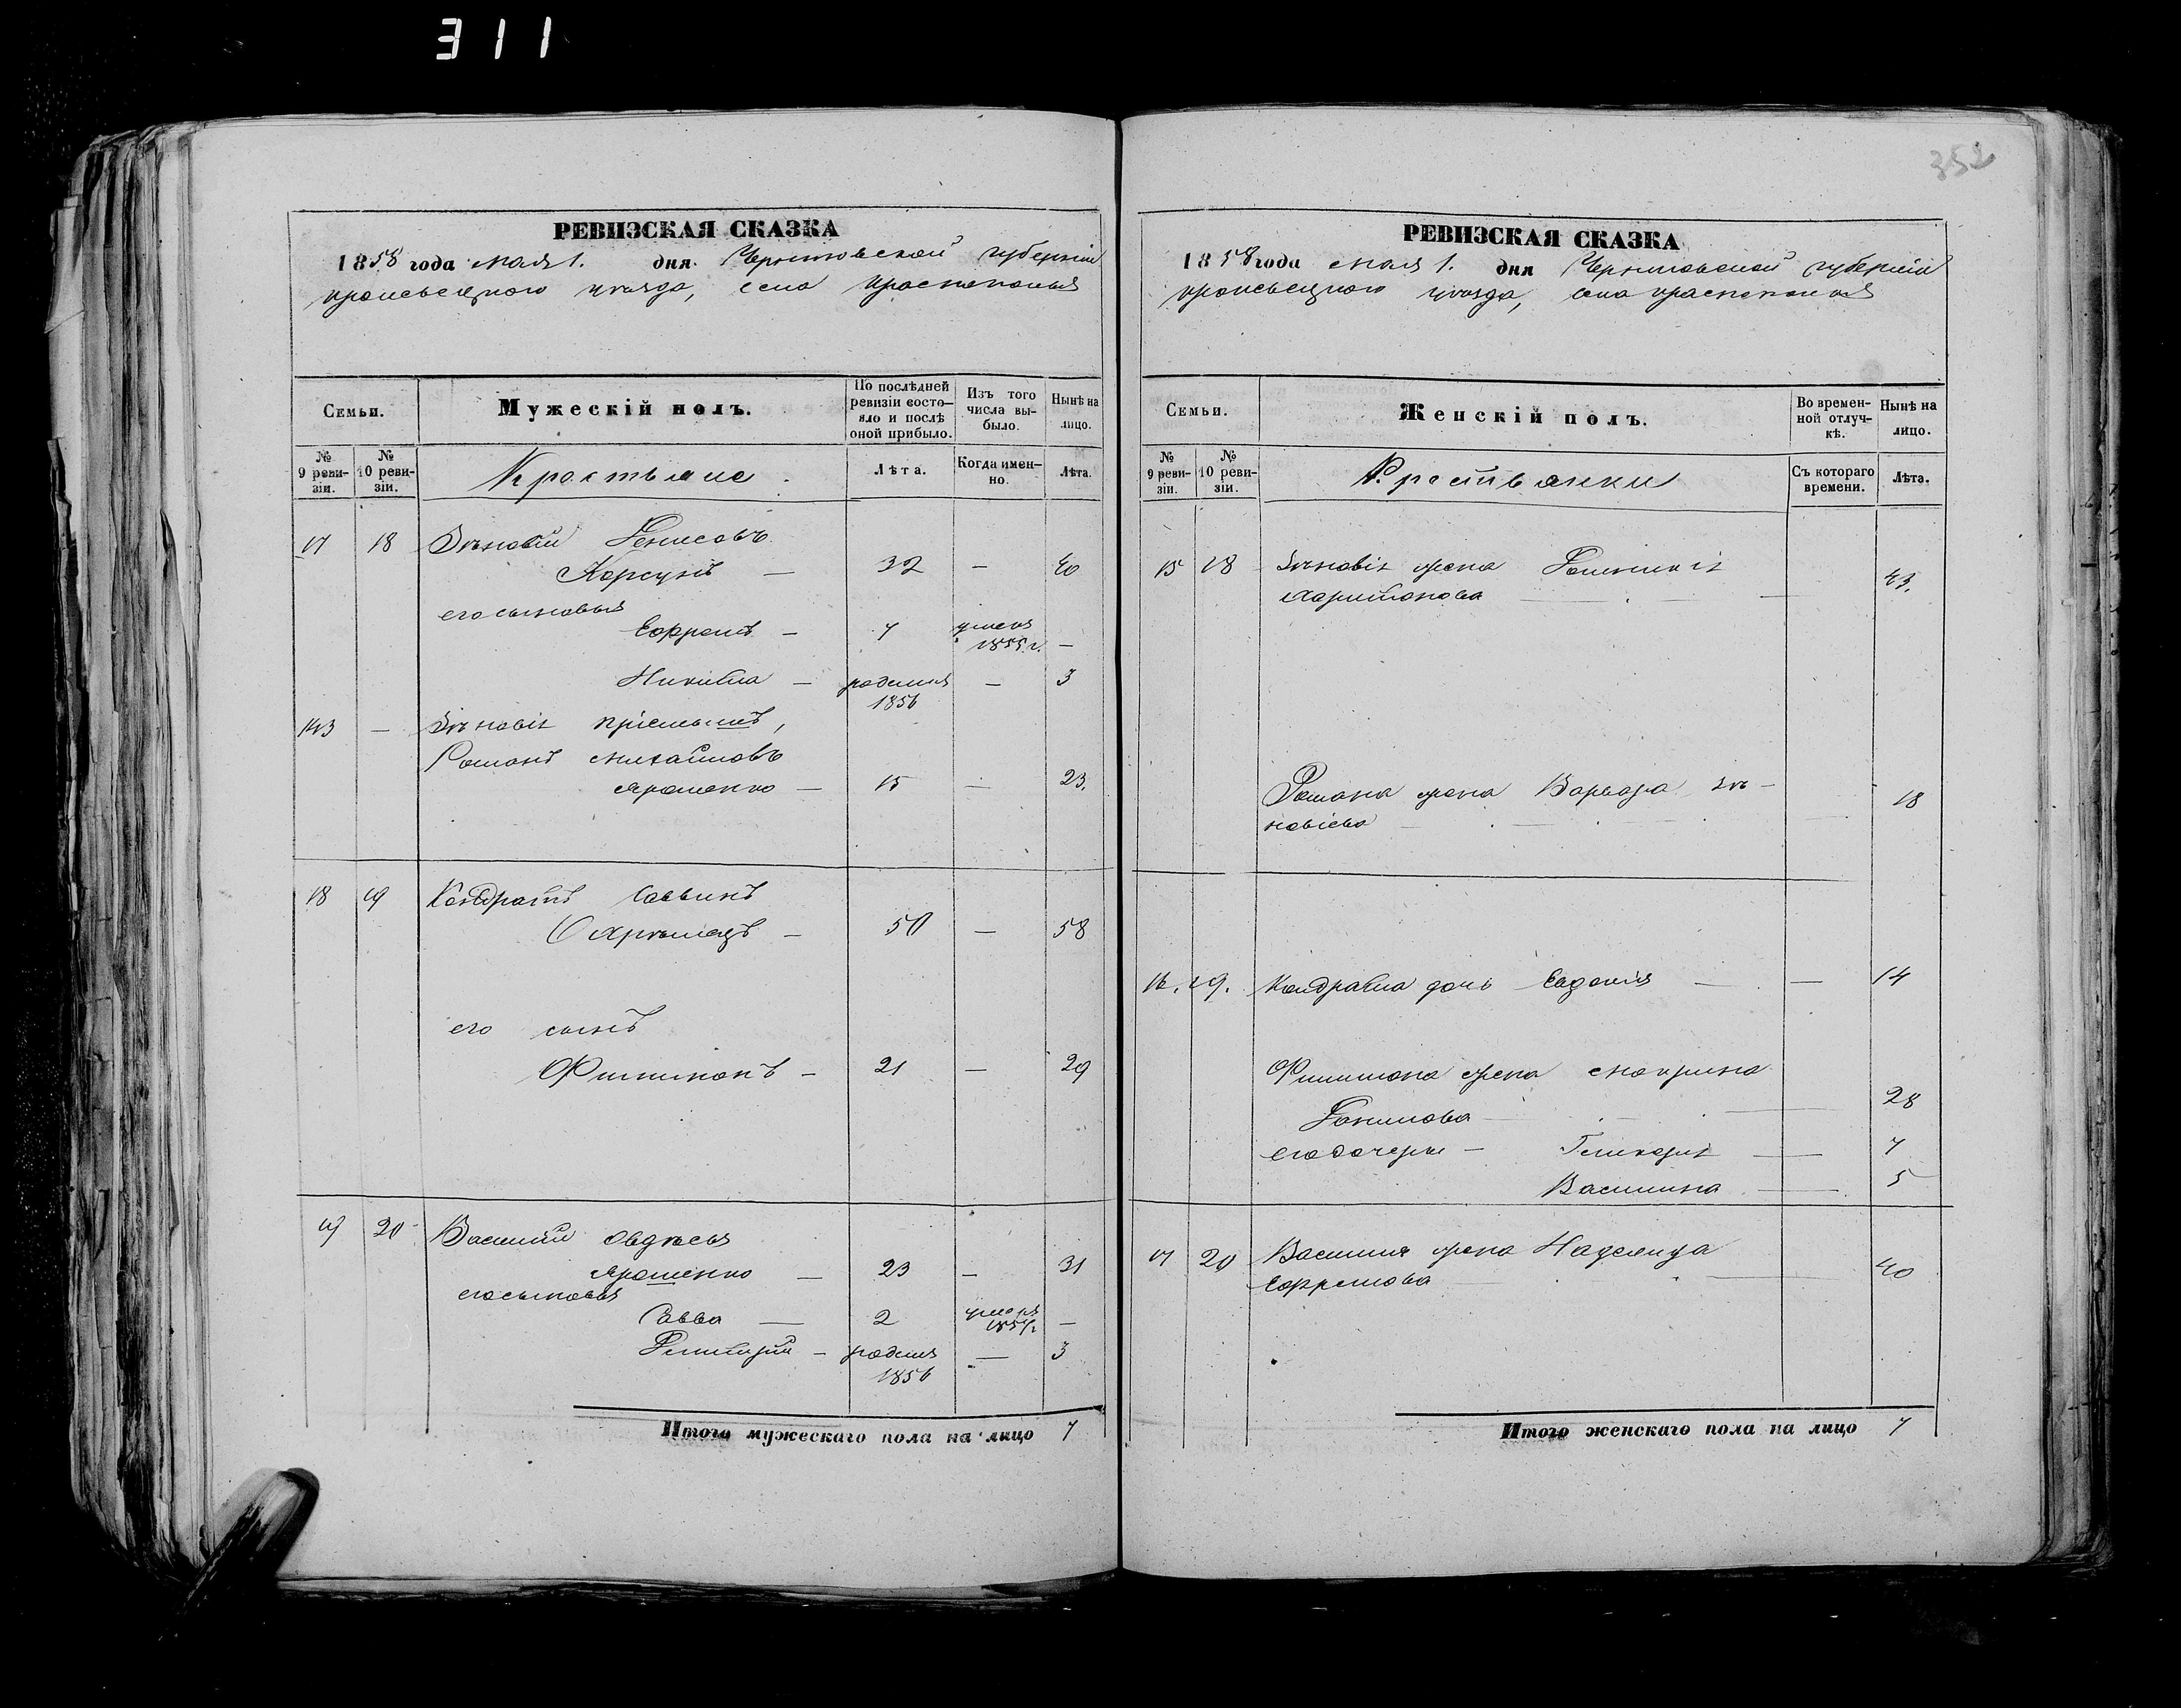 311
РЕВИЗСКАЯ СКАЗКА
1858 года мая 1. дня. Черниговской губернии
кролевецкого уѣзда, села Краснополья
Семьи.
Мужескій полъ.
По послѣдней ревизіи состо-
яло и послѣ
оной прибыло.
Изъ того числа вы-
было.
Нынѣ на
лицо.
№ 9 реви-
зіи.
№ 10 реви-
зіи.
Крестьяне.
Лѣта.
Когда имен-
но.
Лѣта.
17 18 Зѣновій Денисовъ
Корсунъ — 32 — 40
его сыновья
Ефремъ — 7 умеръ
1855.г. —
Никита — родился — 3
1856
143 — Зѣновія пріемышъ,
Романъ Михайловъ
Ярошенко — 15 — 23.
18 19 Кондратъ Саввинъ
50 — 58
его сынъ
Филимонъ — 21 — 29
19 20 Василій Овдѣевъ
Ярошенко — 23 — 31
его сыновья
Савва — 2 умеръ —
Димитрій — родился — 3
1856
Итого мужескаго пола на лицо 7
352
РЕВИЗСКАЯ СКАЗКА
1858 года мая 1. дня Черниговской губерніи
кролевецкого уѣзда, села Краснополья
Семьи.
Женскій полъ.
Во времен-
ной отлуч-
кѣ.
Нынѣ на
лицо.
№ 9 реви-
зіи.
№ 10 реви-
зіи.
Крестьянки
Съ котораго
времени.
Лѣта.
15 18 Зѣновія жена
Харитонова — 43.
Романа жена Варвара Зѣ-
новіева — 18
16. 19. Кондрата дочь Евдокія — — 14
Филимона жена Макрина
Данилова — 28
его дочери — Гликерія — 7
Василина — 5
17 20 Василія жена Надежда
Ефремова — 40
Итого женскаго пола на лицо 7